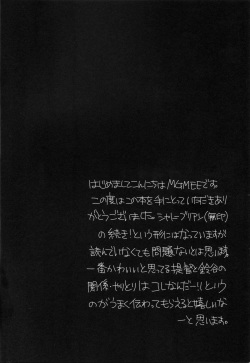 はじめましてこんにちは MGMEEです
この度はこの本を手にとっていただきあり
がとうございました。シャレープリアン(無印)
の続き!という形にはなっていますが
読んでいなくても問題ないとは思います
一番かわいいと思ってる提督と鈴谷の
関係・やりとりはコレなんだー!!という
のがうまく伝わってもらえると嬉しいな
ーと思います。